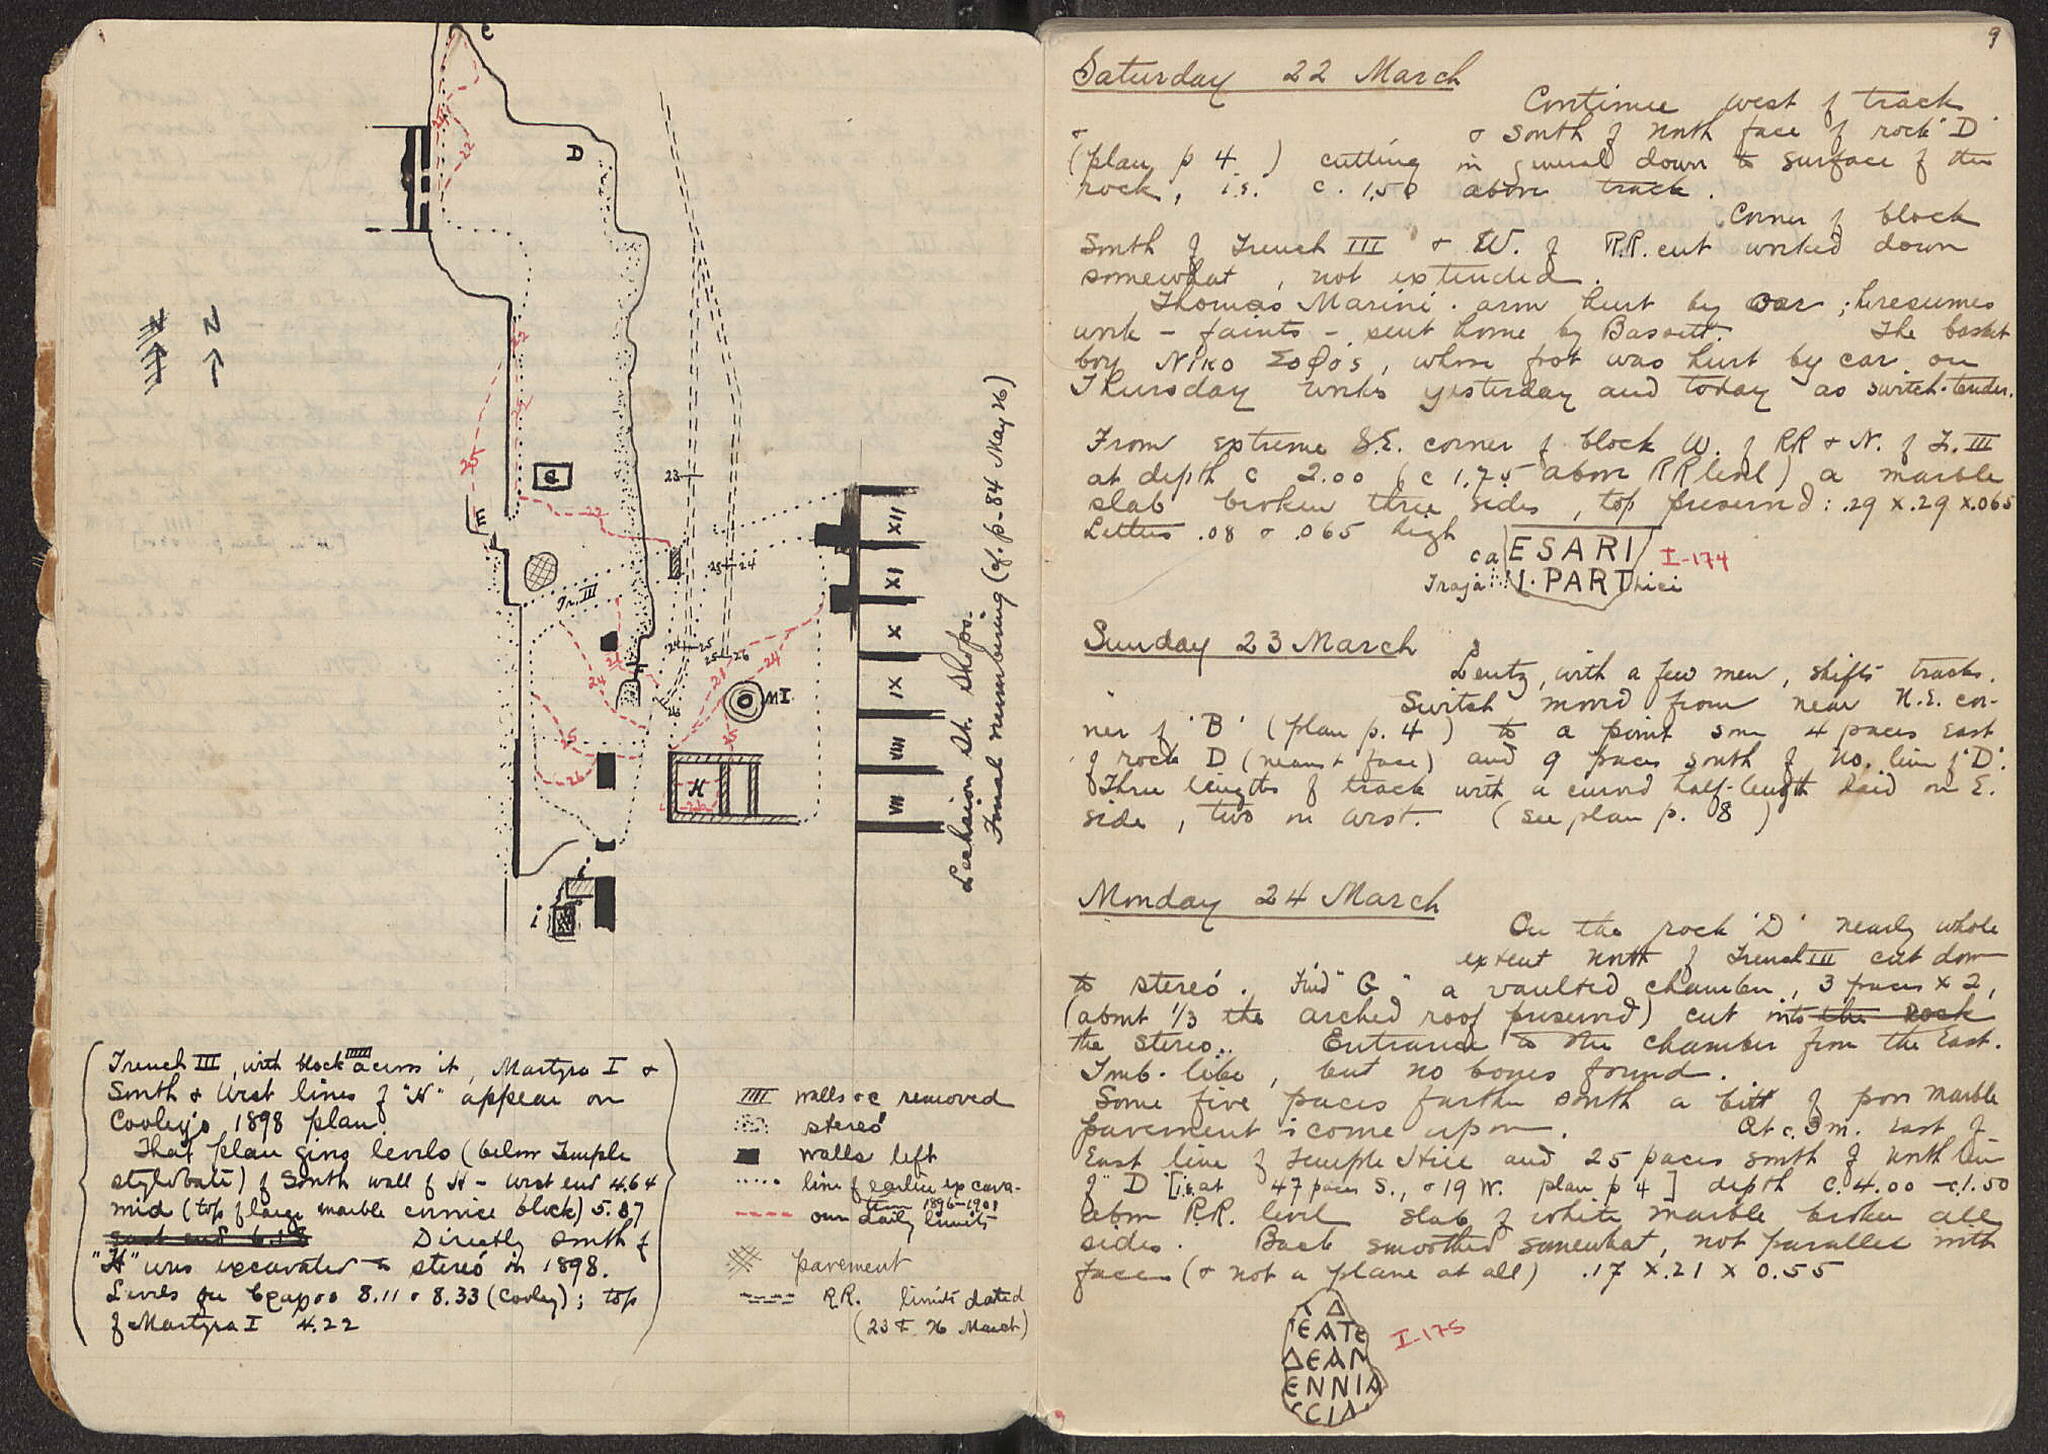 C
D
22
N
N
22
22
25
G
E
23
22
Tr. III
25 24
24 25
25 26
21
24
24
21
26
M I
25
25
26
H
26
i
i
XII
XI
X
IX
VIII
VII
Lechaion St. Shops.
Final numbering (cf. p. 84 May 26)
(Trench III, with block across it, Martyra I &
South & West lines of "H" appear on
Cooley's 1898 plan.
That plan gives levels (below Temple
stylobate) of South wall of H - west end 4.64
mid (top of large marble cornice block) 5.87
east end 6.18 Directly south of
"H" was excavated to stereó in 1898.
Levels on 8.11 & 8.33 (Cooley); top
of Martyra I 4.22
walls &c removed
stereó
walls left
line of earlier excava-
tion 1896-1901
our daily limits
pavement
RR. limits dated
(23 & 26 March)
9
Saturday 22 March
Continue west of track
& South of north face of rock 'D'
(plan p 4 ) cutting in general down to surface of the
rock, i.e. c. 1.50 above track.
Corner of block
South of Trench III & W. of R.R. cut worked down
somewhat, not extended.
Thomas Marini. arm hurt by car; he resumes
work - faints - sent home by Bassett. The basket
boy Niko Σοφος, whose foot was hurt by car on
Thursday works yesterday and today as switch-tender.
From extreme S.E. corner of block W. of RR & N. of Tr. III
at depth c 2.00 (c 1.75 above RR level) a marble
slab broken three sides, top preserved: .29 x .29 x .065
Letters .08 & .065 high
ca ESARI I-174
Traja I. PART hici
Sunday 23 March
Lentz, with a few men, shifts tracks.
Switch moved from near N.E. cor-
ner of 'B' (plan p. 4) to a point some 4 paces East
of rock D (nearest face) and 9 paces south of No. line of 'D'.
Three lengths of track with a curved half-length laid on E.
side, two on west. (see plan p. 8)
Monday 24 March
On the rock 'D' nearly whole
extent North of Trench III cut down
to stereó. Find "G" a vaulted chamber, 3 paces x 2,
(about 1/3 the arched roof preserved) cut into the Rock
the stereo. Entrance to the chamber from the East.
Tomb-like, but no bones found.
Some five paces further south a bit of poor marble
pavement is come upon. At c. 3 m. east of
East line of Temple Hill and 25 paces south of North line
of "D" [i.e. at 47 paces S., & 19 W. plan p 4] depth c. 4.00 - c. 1.50
above R.R. level slab of white marble broken all
sides. Back smoothed somewhat, not parallel with
face (& not a plane at all) .17 x .21 x 0.55
EATE
ΔEAN I-175
ENNIA
CCIA